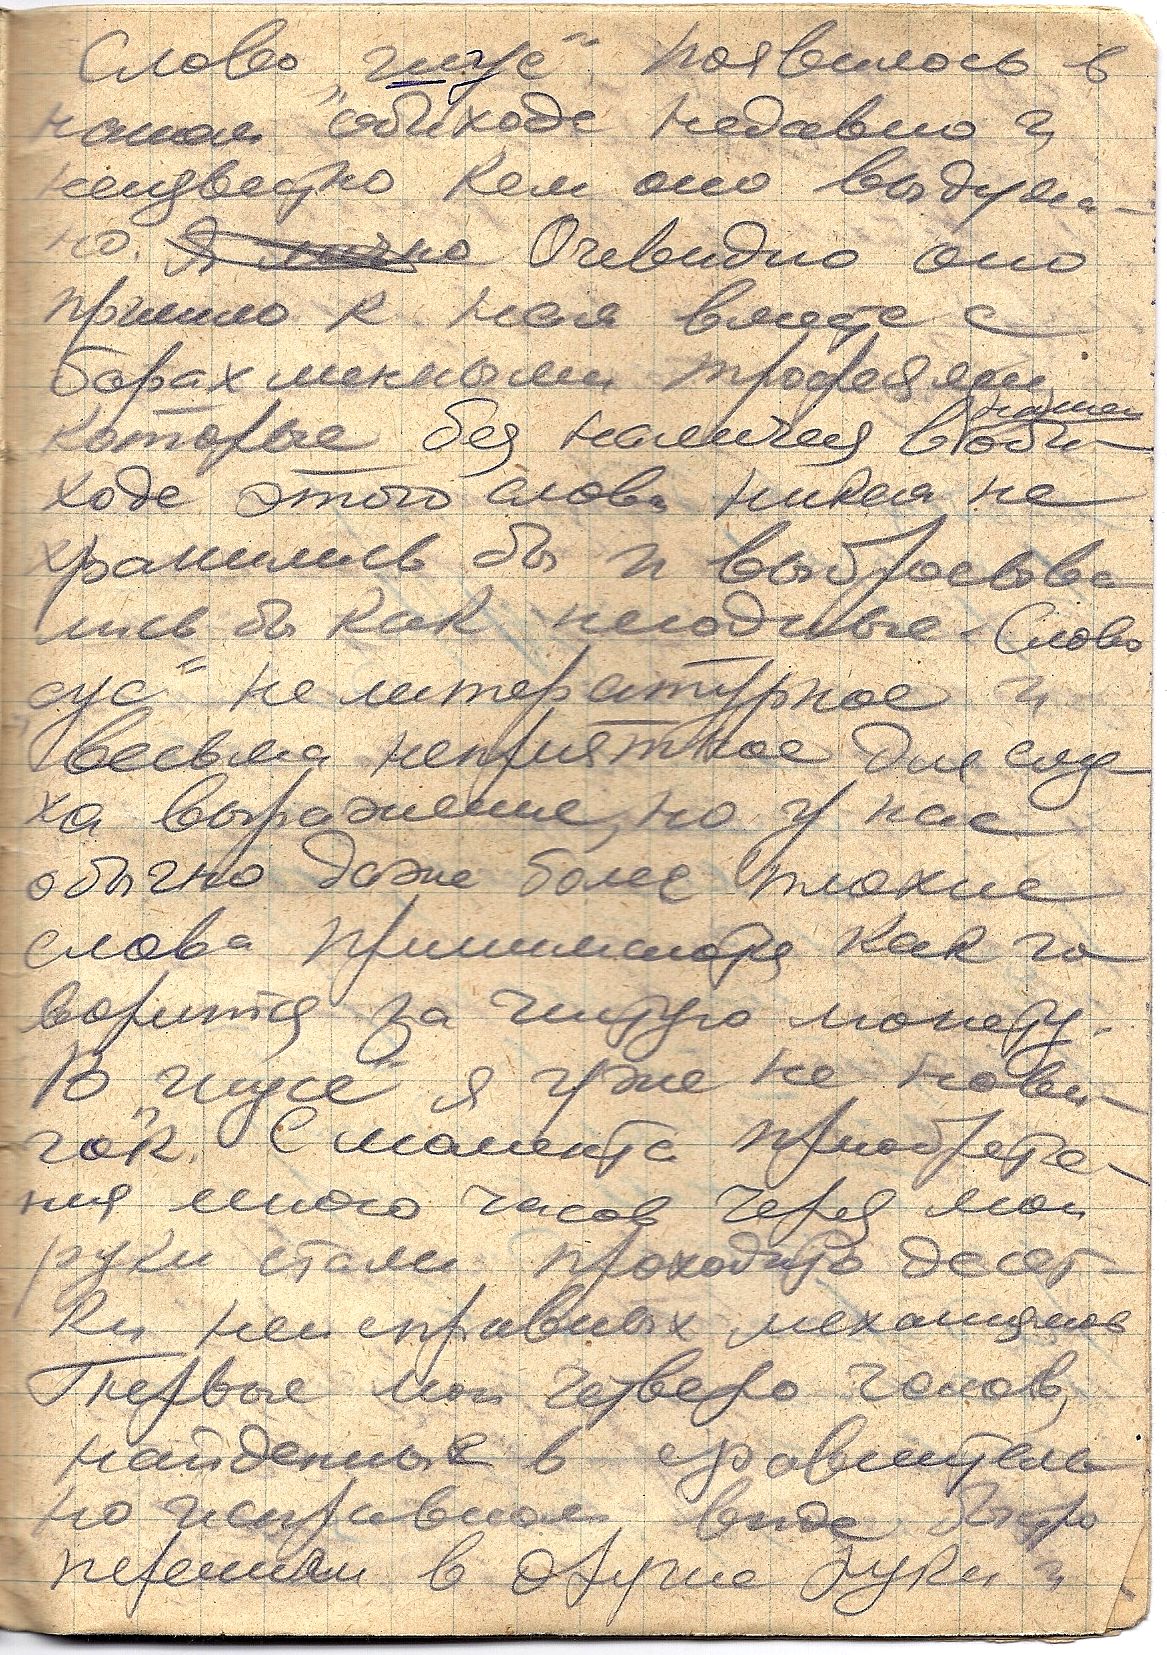 Слово „гпус“ появилось в
нашем обиходе недавно и
неизвестно кем оно выдума-
но. Я точно Очевидно оно
пришло к нам вместе с
барахляными трофеями
которые без наличия в нашем оби-
ходе этого слова никем не
хранились бы и выбрасыва
лись бы как негодные. Слово
" не литературное и
весьма неприятное для слу
ха выражение, но у нас
обычно даже более плохие
слова принимаются как го
ворится за чистую монету.
В я уже не нови-
чок. С момента приобрете-
ния много часов через мои
руки стали проходить десят-
ки неисправных механизмов
Первые мои четверо часов,
найденные в сравнитель
но исправном виде быстро
перешли в другие руки и